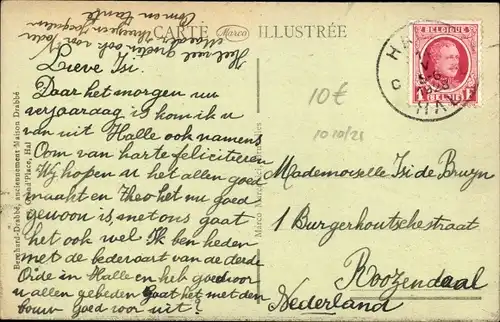 CARTE Marco ILLUSTRÉE
Lieve Isi.
Daar het morgen uw
verjaardag is kom ik u
van uit Halle ook namens
Oom van harte feliciteeren
Wij hopen u het allen goed
maakt en Theo het nu goed
gewoon is, met ons gaat
het ook wel. Ik ben heden
met de bedevaart van de derde
Orde in Halle en heb goed voor
u allen gebeden. Gaat het met den
bouw goed voor uit?
Oom en tante
BELGIQUE
1 F
BELGIE
HAL
10€
1010/21
Mademoiselle Isi de Bruyn
1 Burgerhoutschestraat
Roozendaal
Nederland
Bernhard-Drabbé, anciennement Maison Drabbé
Grand'Place, Hal